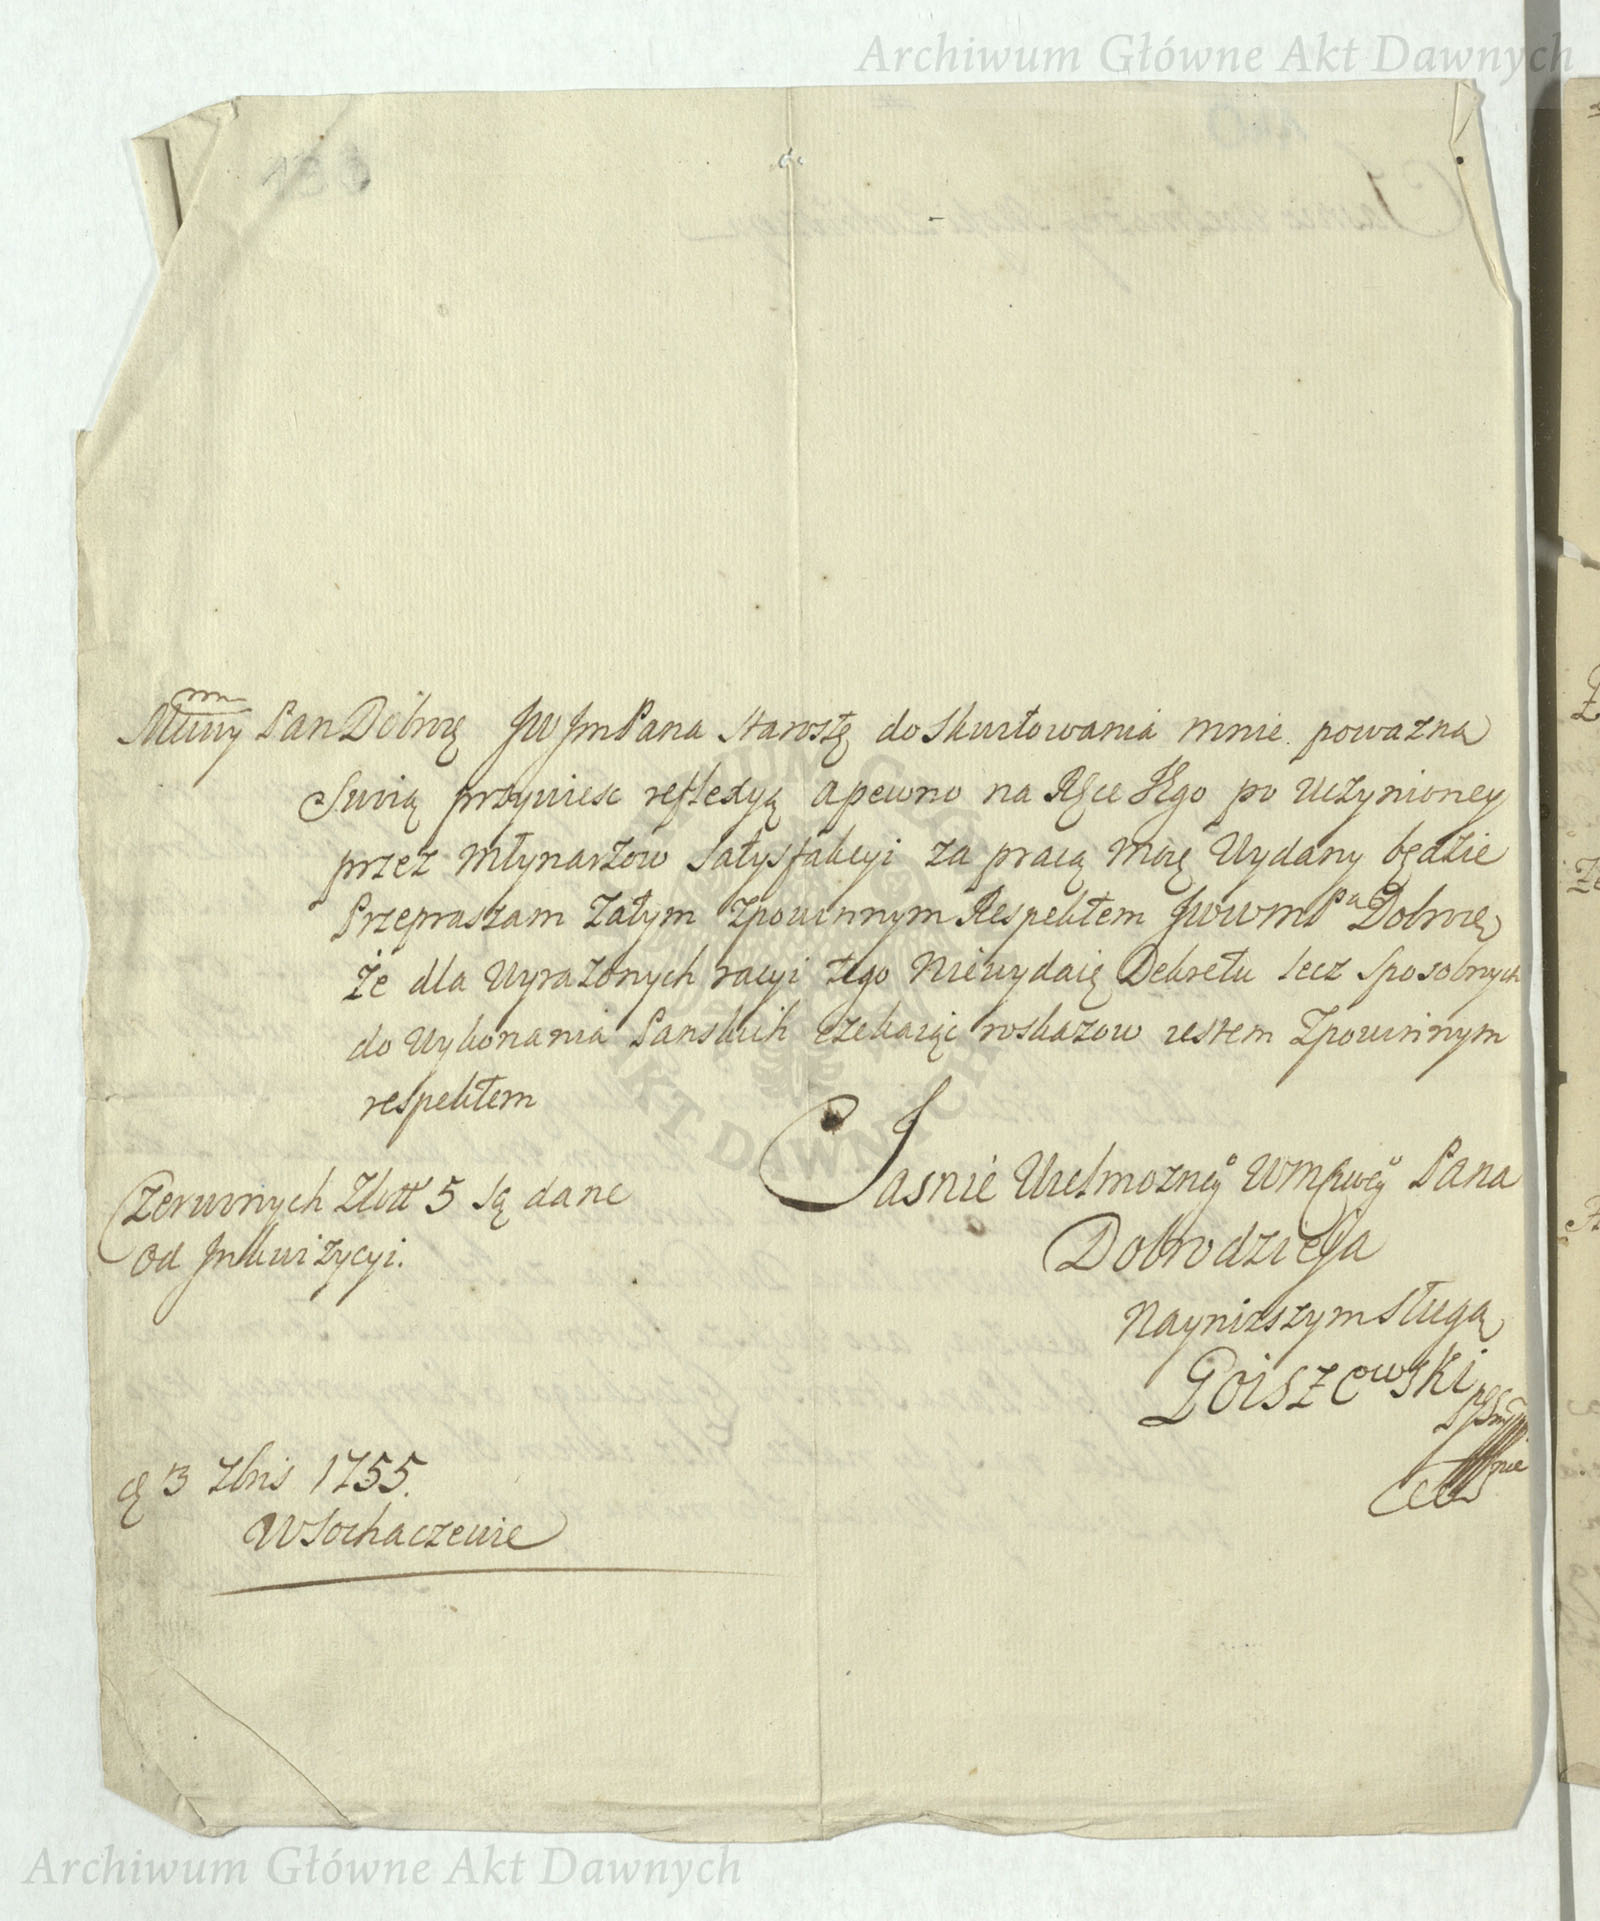 Archiwum Główne Akt Dawnych
Mmwy Pan Dobrzę JW JmPana Starostę do Skurtowania mnie poważną
Swoią przyniesc reflexyą apewno na Ręce Jego po Uczynioney
przez Młynarzow Satysfakcyi za pracą moię Wydany będzie
Przepraszam Zatym Zpowinnym Respektem JWWMPa Dobrze
Że dla Wyrazonych racyi tego Niewydaię Dekretu lecz Sposobnych
do Wykonania Panskich czekaiąc roskazow iestem Zpowinnym
respektem
Jasnie Wielmoznego WMPana Pana
Dobrodzieja
Czerwonych Złott 5 są dane
od Jnkwizycyi.
Nayniższym sługą
Goiszewski
d 3 Xbris 1755.
WSochaczewie
Archiwum Główne Akt Dawnych